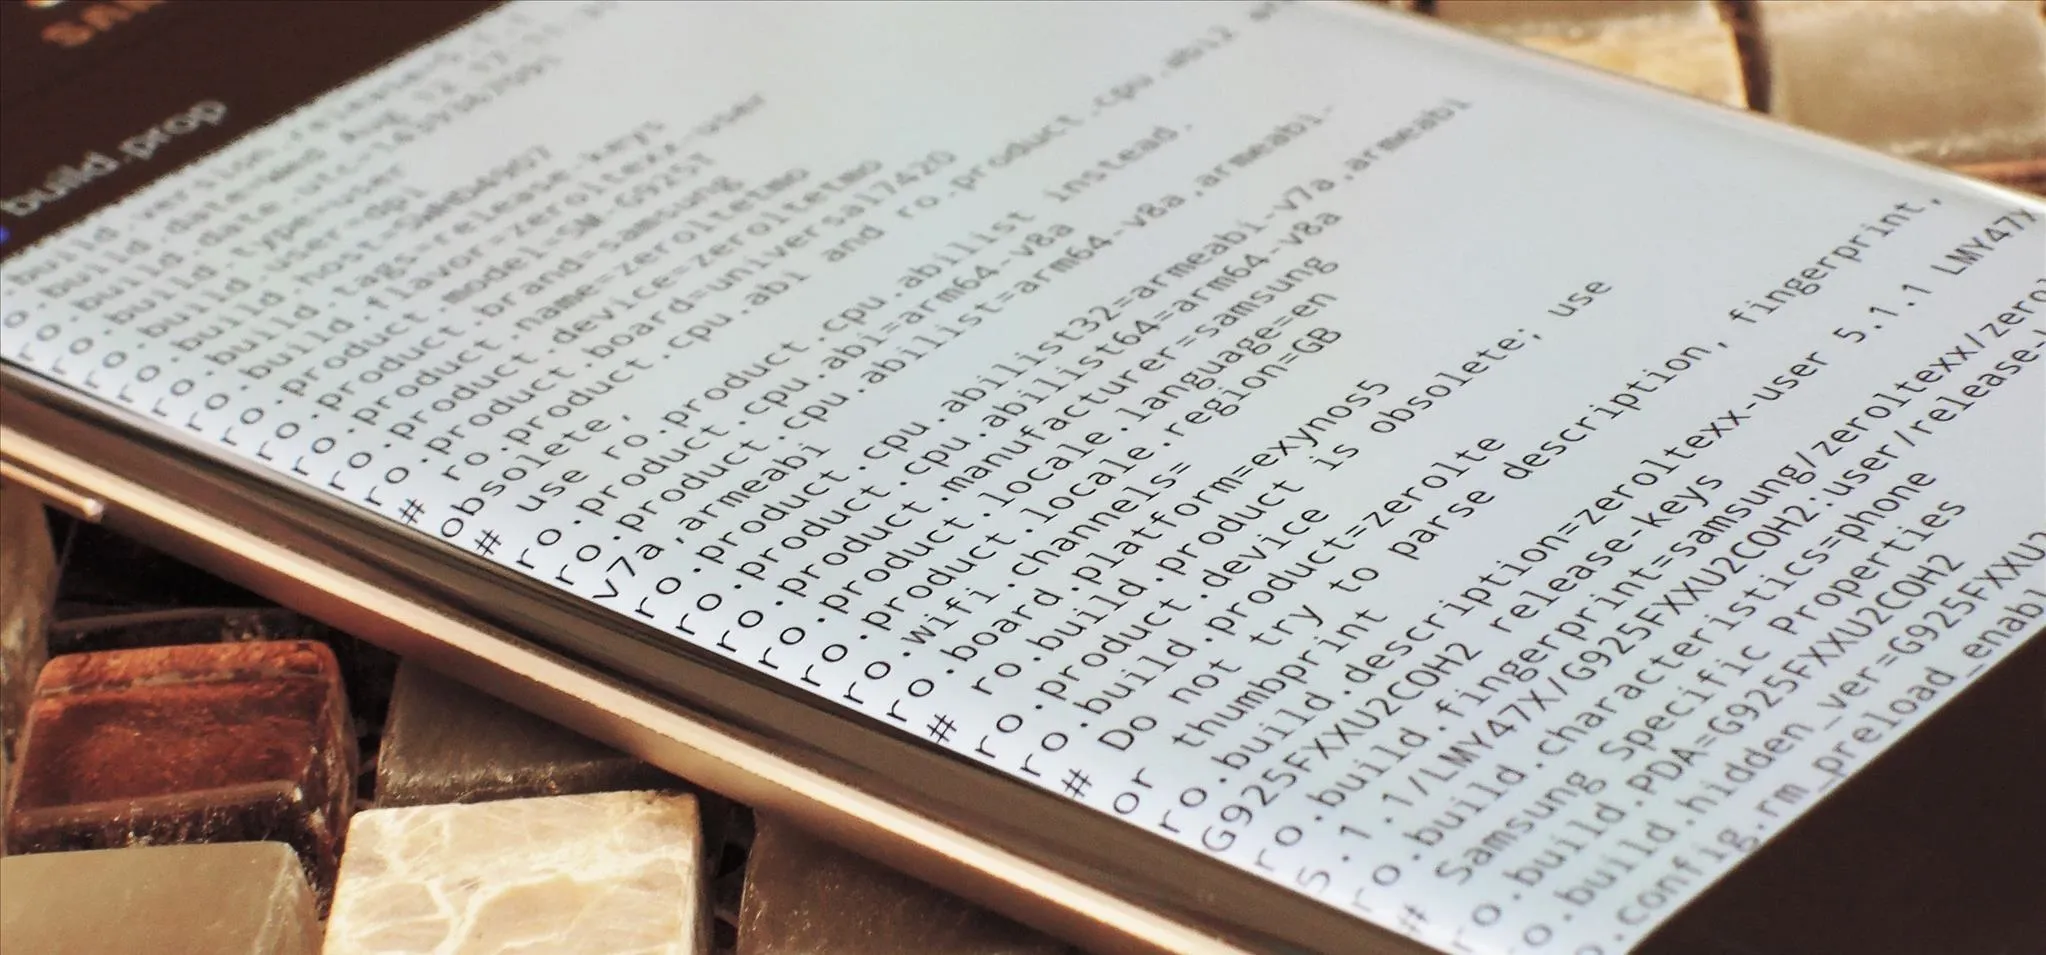 SAM
build.prop
ro.build.version.release=5.1.1
ro.build.date=Wed Aug 12 17:11:
ro.build.date.utc=1439367091
ro.build.type=user
ro.build.user=dpi
ro.build.host=SWHD4907
ro.build.tags=release-keys
ro.build.flavor=zeroltexx-user
ro.product.model=SM-G925T
ro.product.brand=samsung
ro.product.name=zeroltetmo
ro.product.device=zeroltetmo
ro.product.board=universal7420
# ro.product.cpu.abi and ro.product.cpu.abi2 are
obsolete,
# use ro.product.cpu.abilist instead.
ro.product.cpu.abi=arm64-v8a
ro.product.cpu.abilist=arm64-v8a,armeabi-
v7a,armeabi
ro.product.cpu.abilist32=armeabi-v7a,armeabi
ro.product.cpu.abilist64=arm64-v8a
ro.product.manufacturer=samsung
ro.product.locale.language=en
ro.product.locale.region=GB
ro.wifi.channels=
ro.board.platform=exynos5
# ro.build.product is obsolete; use
ro.product.device
ro.build.product=zerolte
# Do not try to parse description, fingerprint,
or thumbprint
ro.build.description=zeroltexx-user 5.1.1 LMY47X
G925FXXU2COH2 release-keys
ro.build.fingerprint=samsung/zeroltexx/zerol
5.1.1/LMY47X/G925FXXU2COH2:user/release-
ro.build.characteristics=phone
# Samsung Specific Properties
ro.build.PDA=G925FXXU2COH2
ro.build.hidden_ver=G925FXXU2
o.config.rm_preload_enabl